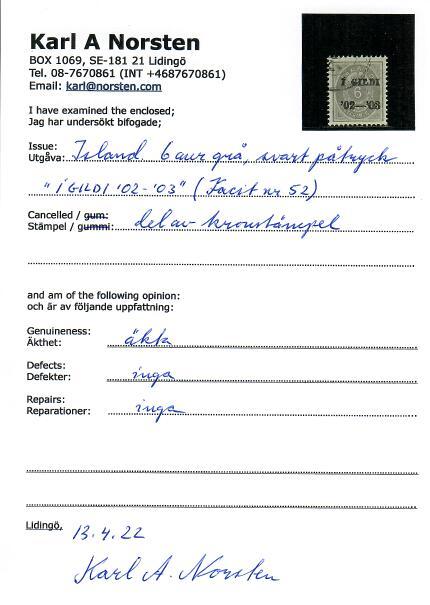 Karl A Norsten
BOX 1069, SE-181 21 Lidingö
Tel. 08-7670861 (INT +4687670861)
Email: karl@norsten.com
Í GILDI
6
'02–'03
I have examined the enclosed;
Jag har undersökt bifogade;
Issue:
Utgåva: Island 6 aur grå, svart påtryck
"Í GILDI '02-'03" (Facit nr 52)
Cancelled / gum:
Stämpel / gummi: del av kronstämpel
and am of the following opinion:
och är av följande uppfattning:
Genuineness:
Äkthet: äkta
Defects:
Defekter: inga
Repairs:
Reparationer: inga
Lidingö, 13.4.22
Karl A. Norsten